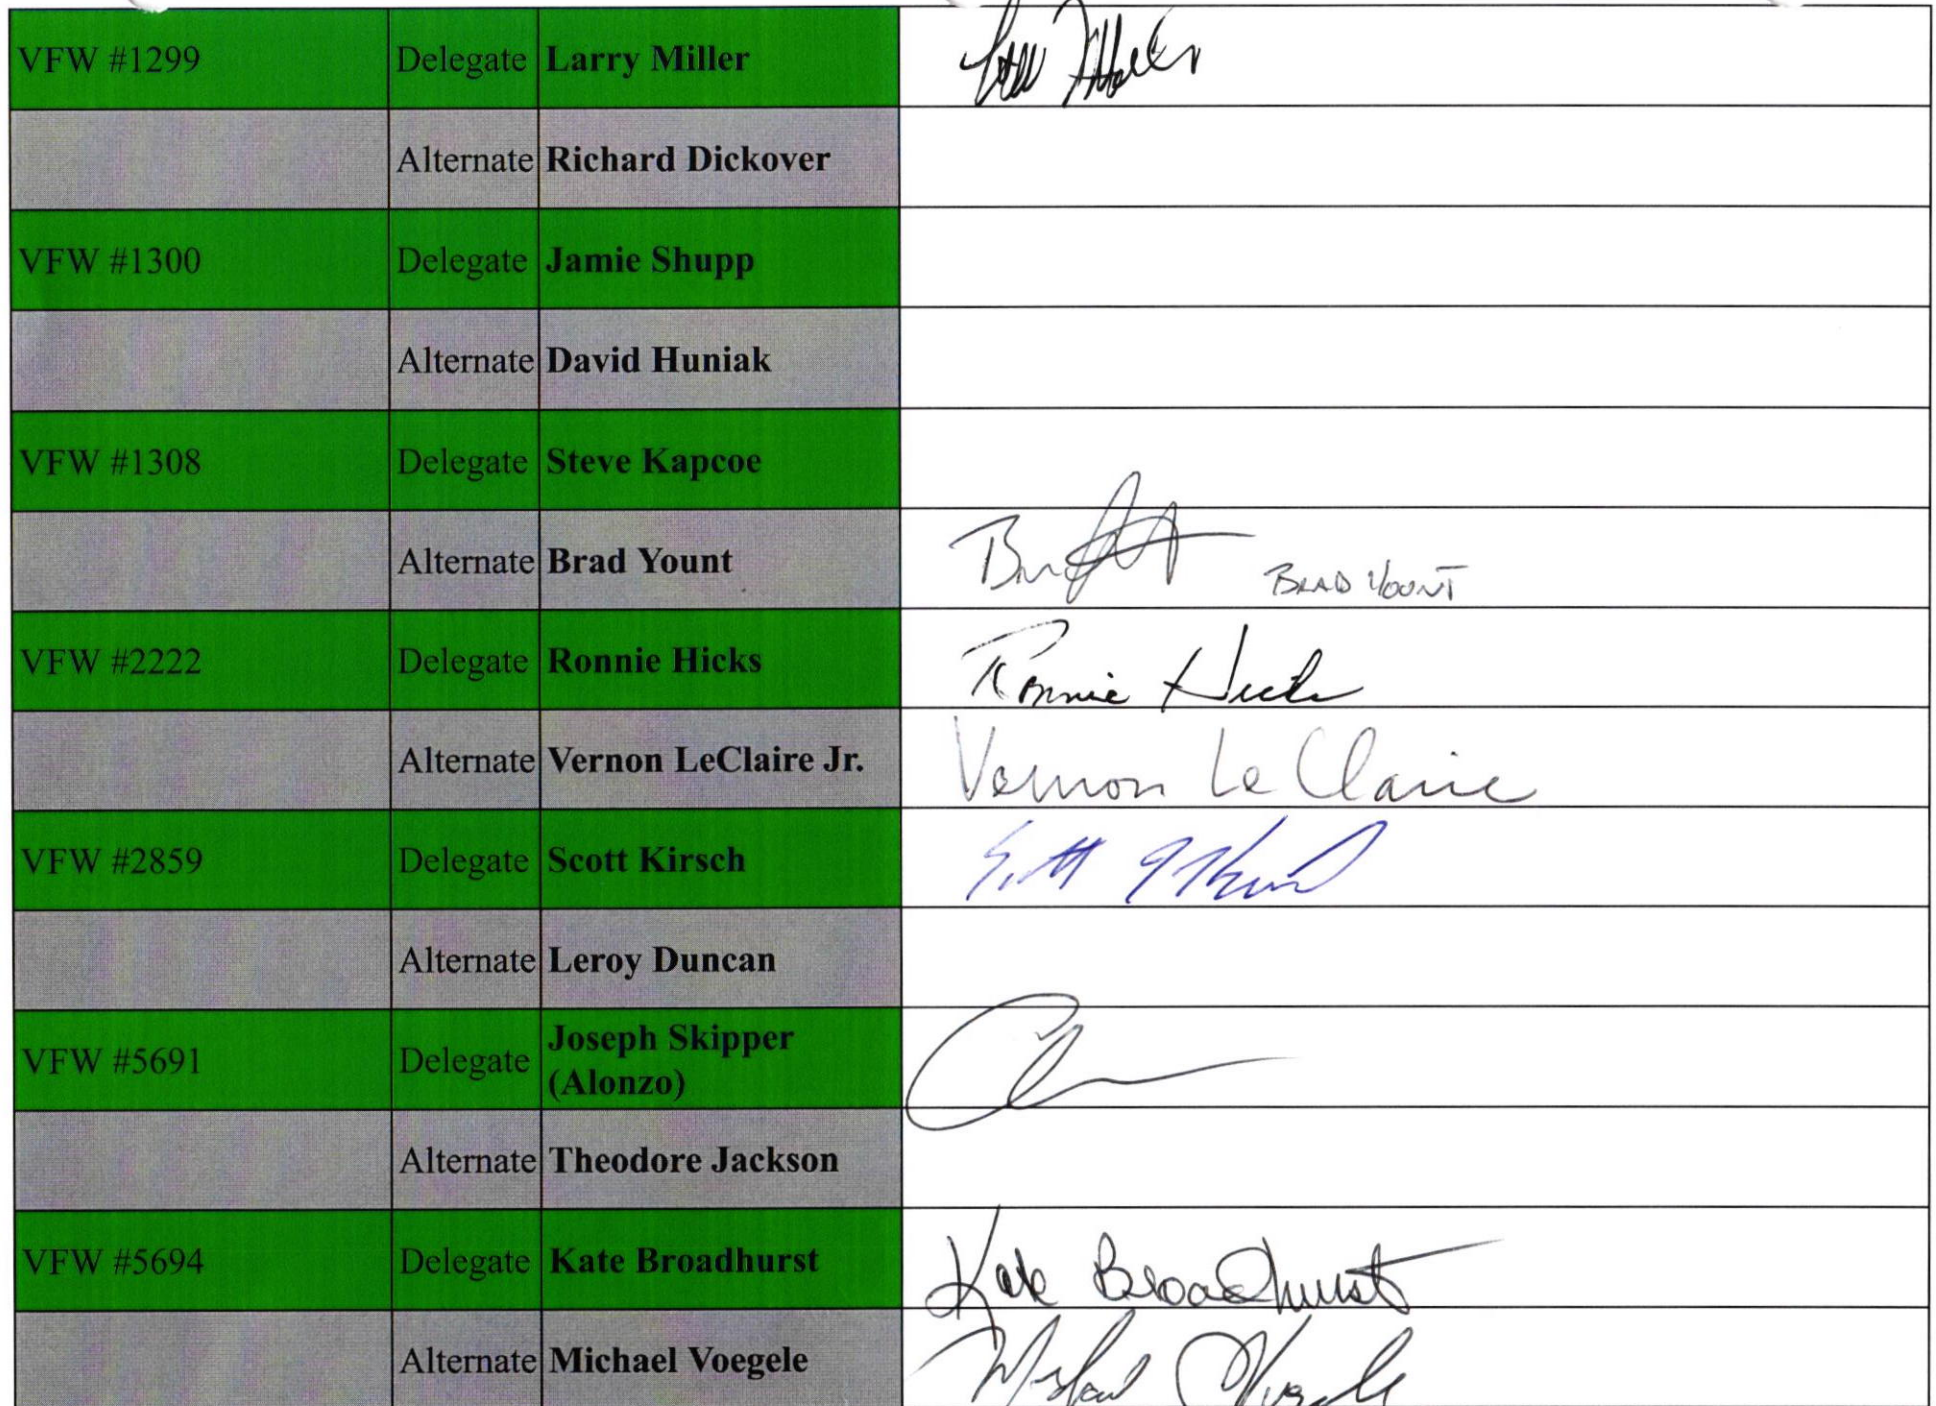 VFW #1299 Delegate Larry Miller
Alternate Richard Dickover
VFW #1300 Delegate Jamie Shupp
Alternate David Huniak
VFW #1308 Delegate Steve Kapcoe
Alternate Brad Yount BRAD YOUNT
VFW #2222 Delegate Ronnie Hicks Ronnie Hicks
Alternate Vernon LeClaire Jr. Vernon LeClaire
VFW #2859 Delegate Scott Kirsch
Alternate Leroy Duncan
VFW #5691 Delegate Joseph Skipper
(Alonzo)
Alternate Theodore Jackson
VFW #5694 Delegate Kate Broadhurst Kate Broadhurst
Alternate Michael Voegele Michael Voegele